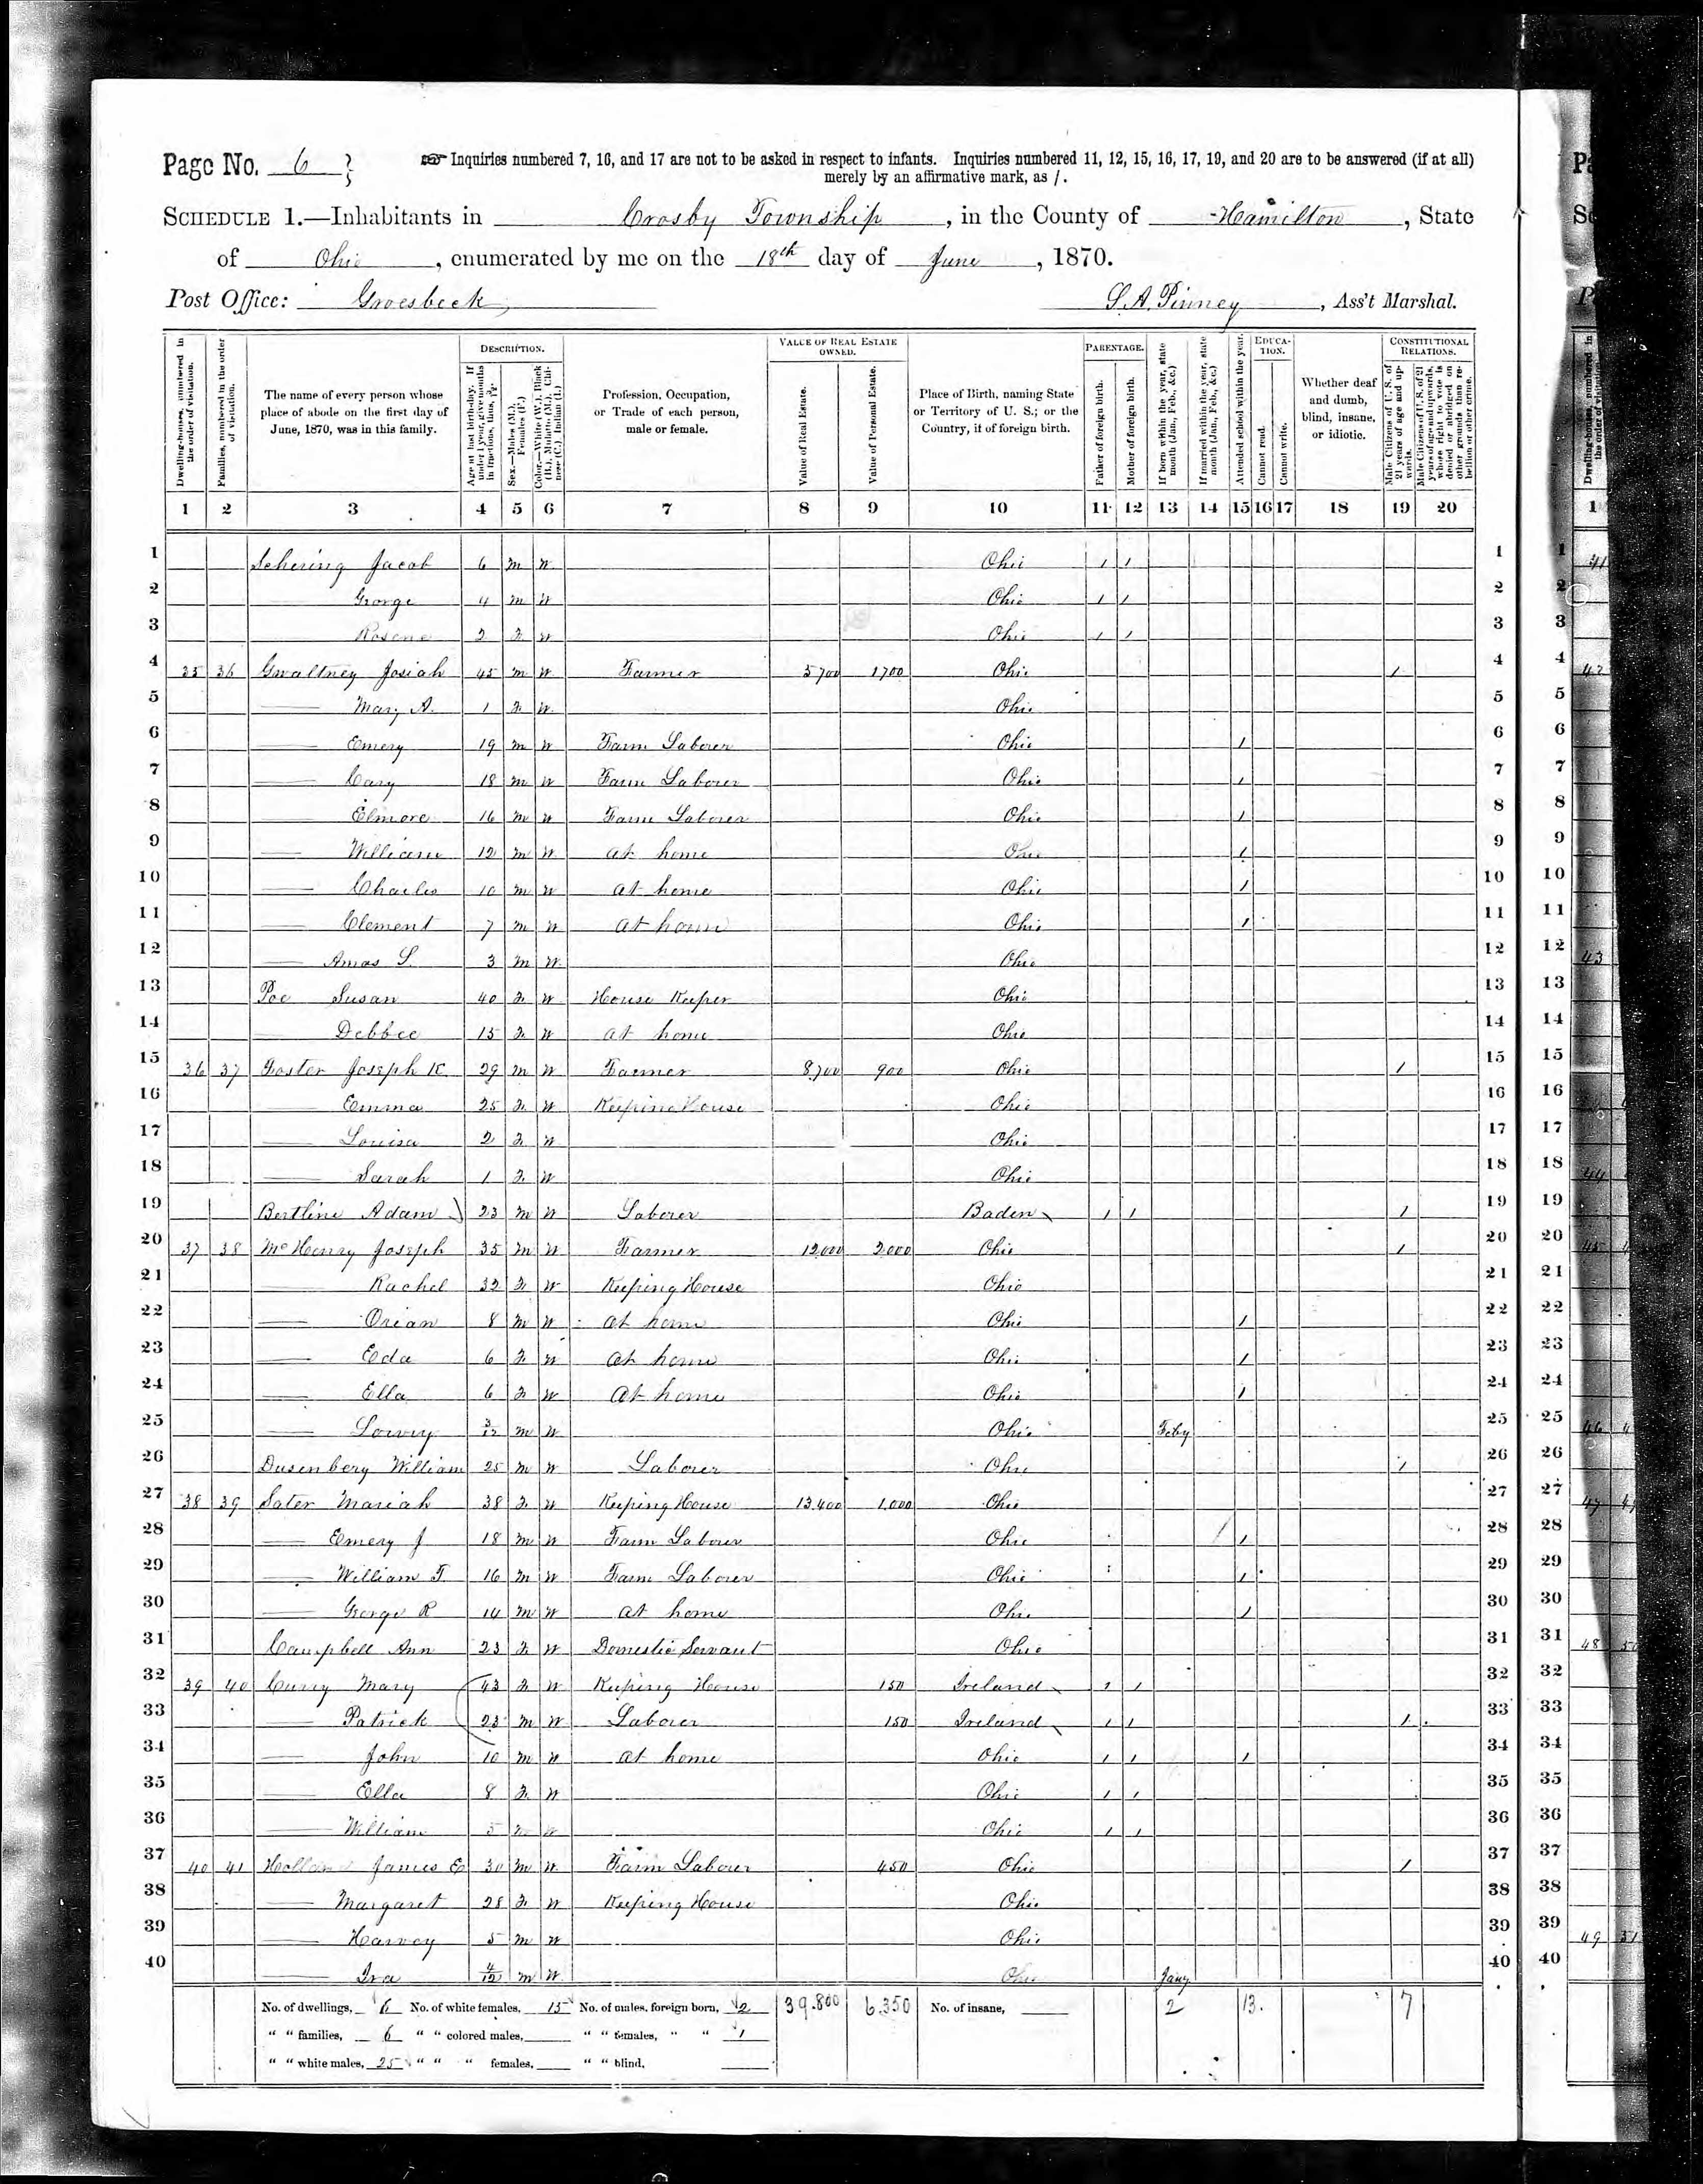 Page No. 6 }
☞ Inquiries numbered 7, 16, and 17 are not to be asked in respect to infants. Inquiries numbered 11, 12, 15, 16, 17, 19, and 20 are to be answered (if at all)
merely by an affirmative mark, as /.
SCHEDULE 1.—Inhabitants in Crosby Township, in the County of Hamilton, State
of Ohio, enumerated by me on the 18th day of June, 1870.
Post Office: Groesbeck
S. A. Pinney, Ass't Marshal.
DESCRIPTION. VALUE OF REAL ESTATE OWNED. PARENTAGE. EDUCATION. CONSTITUTIONAL RELATIONS.
Dwelling-houses, numbered in the order of visitation.
Families, numbered in the order of visitation.
The name of every person whose place of abode on the first day of June, 1870, was in this family.
Age at last birth-day. If under 1 year, give months in fractions, thus, 3/12.
Sex.—Males (M.), Females (F.)
Color.—White (W.), Black (B.), Mulatto (M.), Chinese (C.), Indian (I.)
Profession, Occupation, or Trade of each person, male or female.
Value of Real Estate.
Value of Personal Estate.
Place of Birth, naming State or Territory of U. S.; or the Country, if of foreign birth.
Father of foreign birth.
Mother of foreign birth.
If born within the year, state month (Jan., Feb., &c.)
If married within the year, state month (Jan., Feb., &c.)
Attended school within the year.
Cannot read.
Cannot write.
Whether deaf and dumb, blind, insane, or idiotic.
Male Citizens of U. S. of 21 years of age and upwards.
Male Citizens of U. S. of 21 years of age and upwards, whose right to vote is denied or abridged on other grounds than rebellion or other crime.
1 2 3 4 5 6 7 8 9 10 11 12 13 14 15 16 17 18 19 20
1 Schering Jacob 6 m W Ohio / / 1
2 George 4 m W Ohio / / 2
3 Rosena 2 F W Ohio / / 3
4 35 36 Gwaltney Josiah 45 m W Farmer 5700 1700 Ohio / 4
5 Mary A. 1 F W Ohio 5
6 Emery 19 m W Farm Laborer Ohio / 6
7 Cary 18 m W Farm Laborer Ohio / 7
8 Elmore 16 m W Farm Laborer Ohio / 8
9 William 12 m W at home Ohio / 9
10 Charles 10 m W at home Ohio / 10
11 Clement 7 m W at home Ohio / 11
12 Amos S. 3 m W Ohio 12
13 Poe Susan 40 F W House Keeper Ohio 13
14 Debbee 15 F W at home Ohio 14
15 36 37 Foster Joseph K. 29 m W Farmer 8,700 900 Ohio / 15
16 Emma 25 F W Keeping House Ohio 16
17 Louisa 2 F W Ohio 17
18 Sarah 1 F W Ohio 18
19 Bertline Adam 23 m W Laborer Baden / / / 19
20 37 38 McHenry Joseph 35 m W Farmer 12,000 2,000 Ohio / 20
21 Rachel 32 F W Keeping House Ohio 21
22 Orian 8 m W at home Ohio / 22
23 Eda 6 F W at home Ohio / 23
24 Ella 6 F W at home Ohio / 24
25 Lowry 3/12 m W Ohio Feby 25
26 Dusenbery William 25 m W Laborer Ohio / 26
27 38 39 Sater Mariah 38 F W Keeping House 13,400 1,000 Ohio 27
28 Emery J 18 m W Farm Laborer Ohio / 28
29 William T. 16 m W Farm Laborer Ohio / 29
30 George R 14 m W at home Ohio / 30
31 Campbell Ann 23 F W Domestic Servant Ohio 31
32 39 40 Curry Mary 43 F W Keeping House 150 Ireland / / 32
33 Patrick 23 m W Laborer 150 Ireland / / / 33
34 John 10 m W at home Ohio / / / 34
35 Ella 8 F W Ohio / / 35
36 William 5 m W Ohio / / 36
37 40 41 James E 30 m W Farm Laborer 450 Ohio / 37
38 Margaret 28 F W Keeping House Ohio 38
39 Harvey 5 m W Ohio 39
40 Ira 4/12 m W Ohio Jany 40
No. of dwellings, 6 No. of white females, 15 No. of males, foreign born, 2 39.800 6.350 No. of insane, 2 13. 7
" " families, 6 " " colored males, " " females, " " 1
" " white males, 25 " " " females, " " blind,